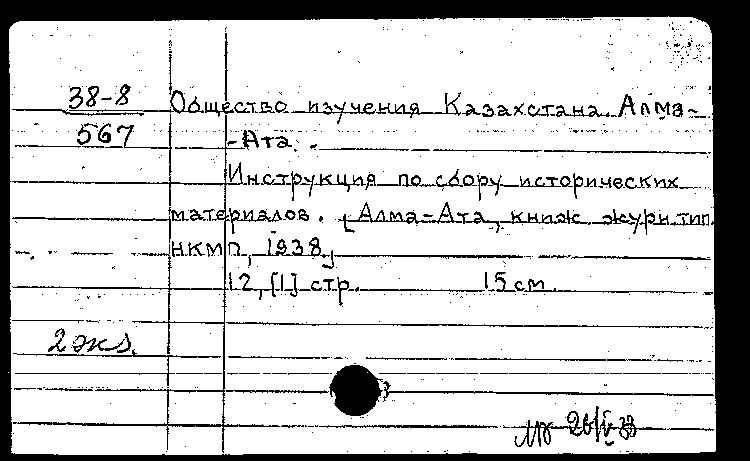 38-8 Общество изучения Казахстана. Алма-
567 -Ата. -
Инструкция по сбору исторических
материалов. [Алма-Ата, книж. журн. тип.
НКМП, 1938]
12, [1] стр. 15 см.
2 экз.
26/V-38